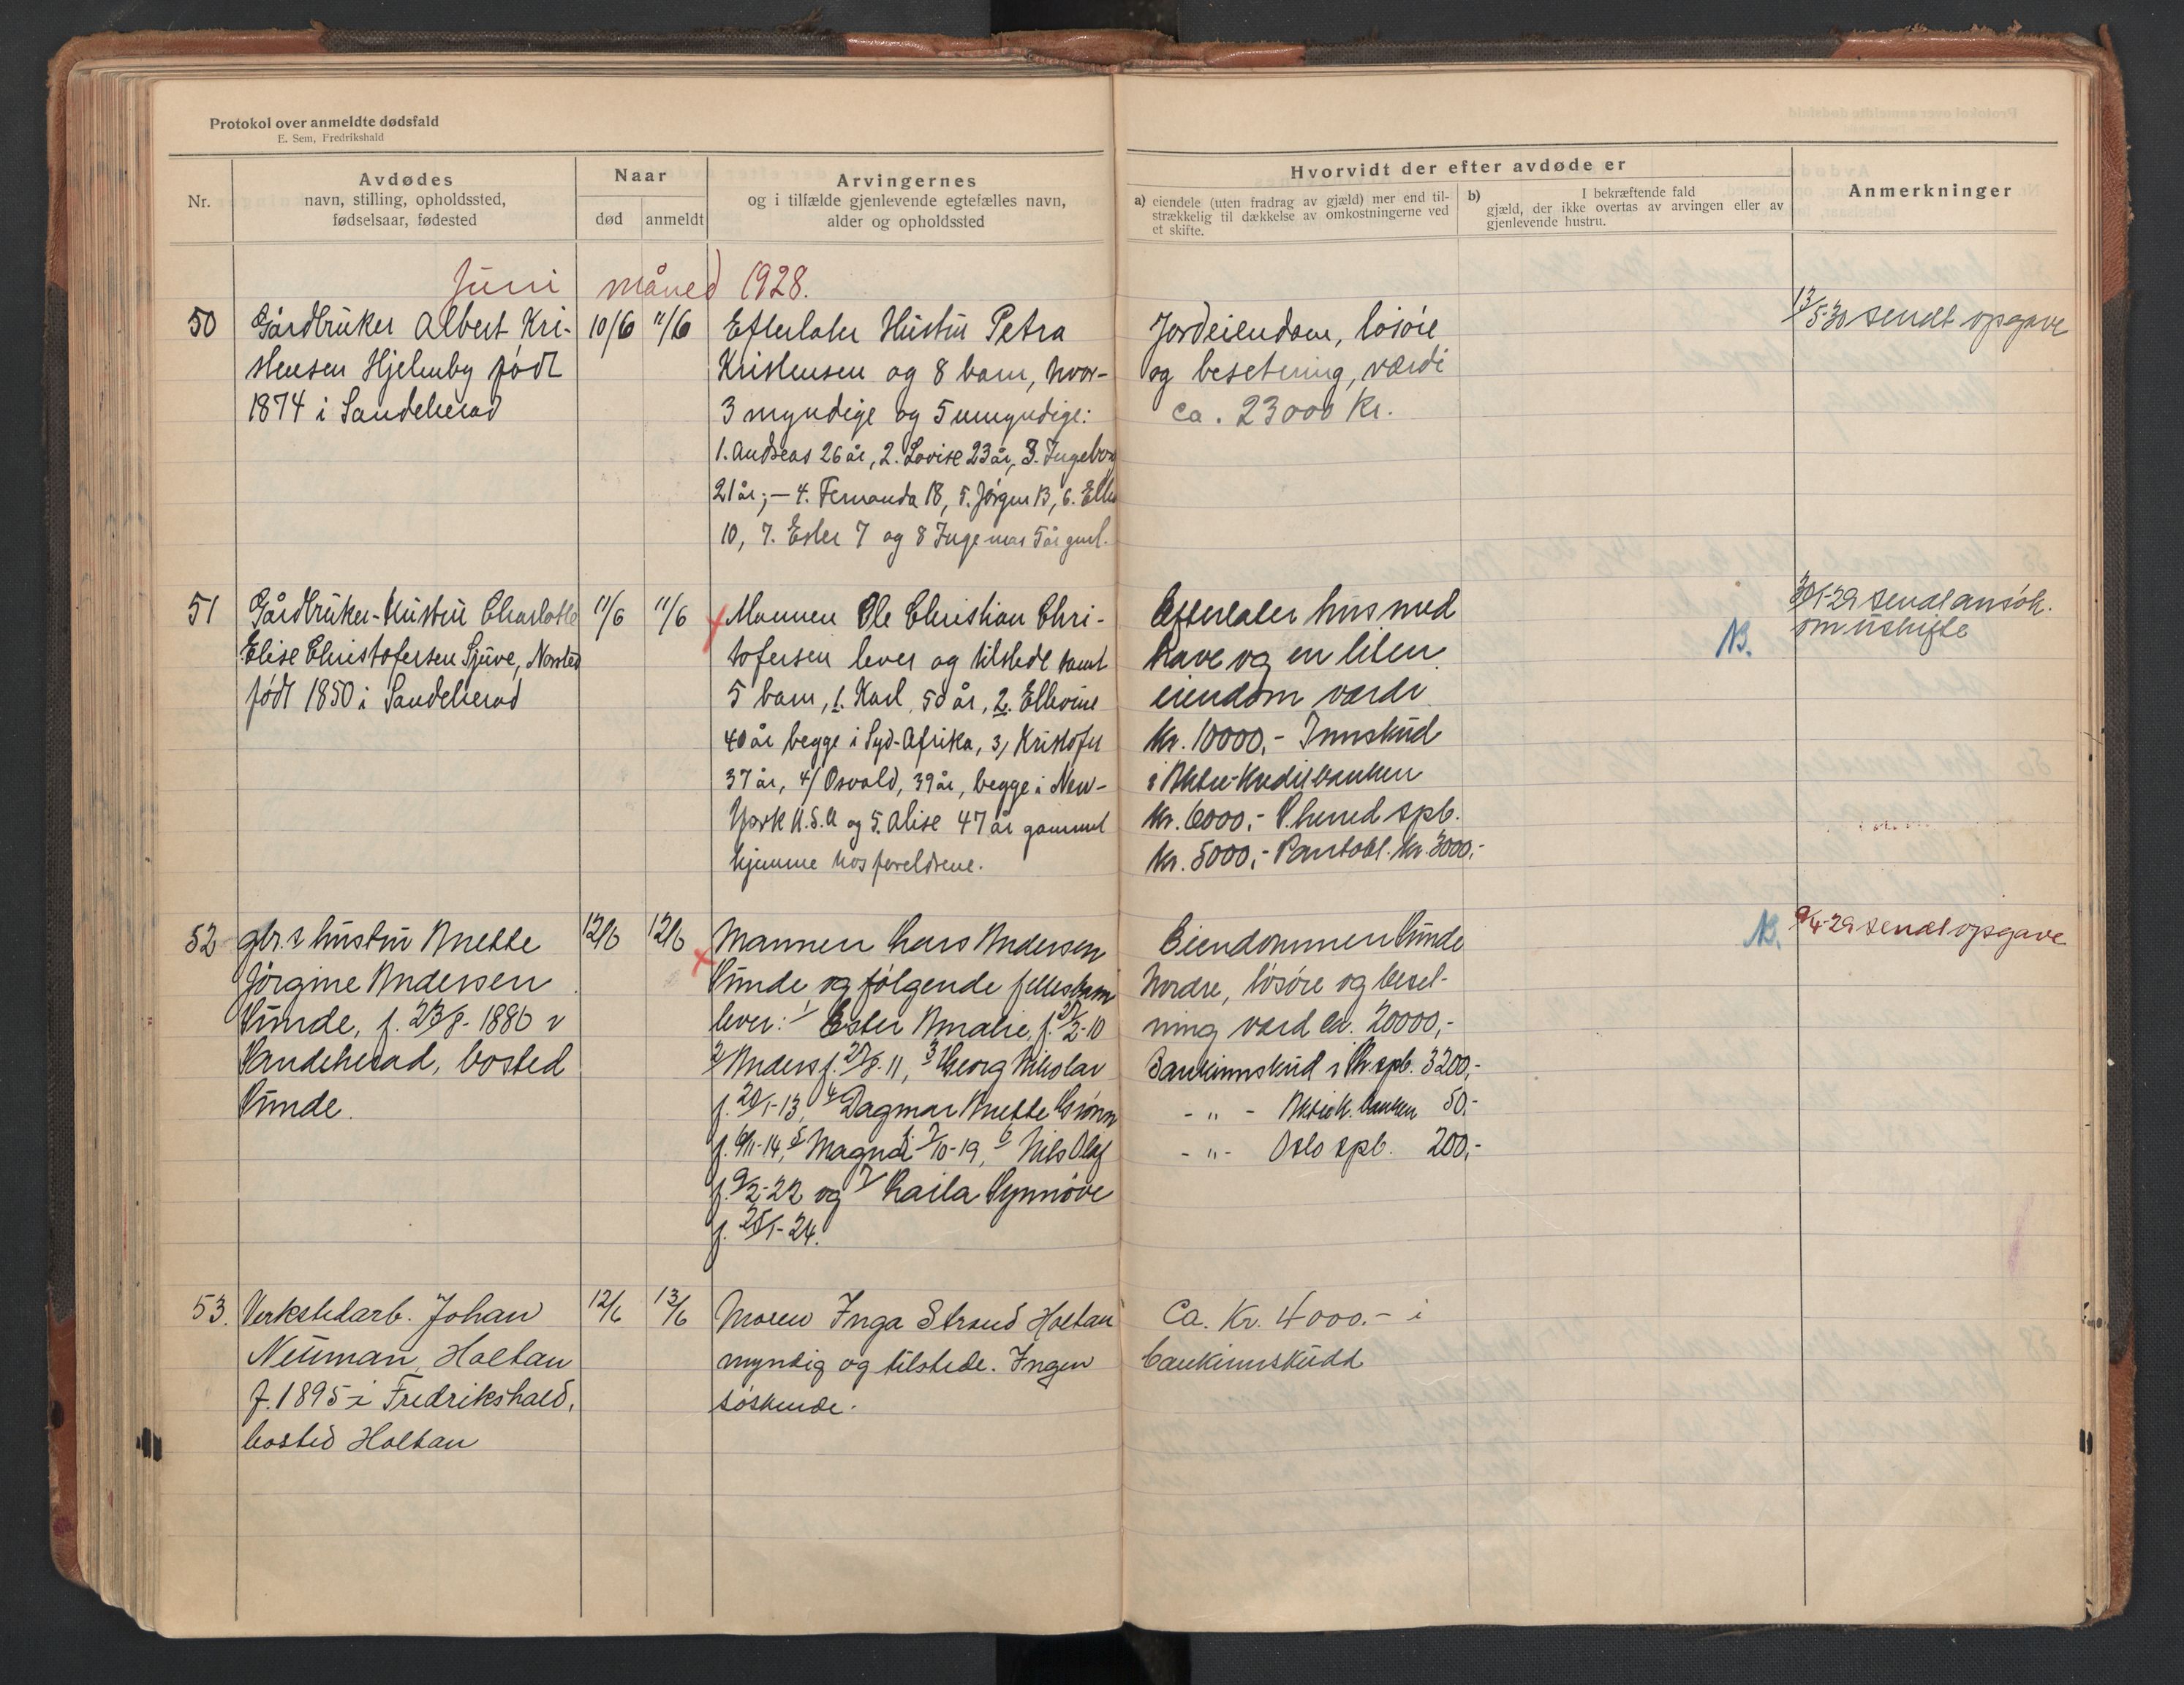 Protokol over anmeldte dødsfald
E. Sem, Fredrikshald
Nr.
Avdødes
navn, stilling, opholdssted,
fødselsaar, fødested
Naar
død
anmeldt
Arvingernes
og i tilfælde gjenlevende egtefælles navn,
alder og opholdssted
Hvorvidt der efter avdøde er
a) eiendele (uten fradrag av gjæld) mer end til-
strækkelig til dækkelse av omkostningerne ved
et skifte.
b) I bekræftende fald
gjæld, der ikke overtas av arvingen eller av
gjenlevende hustru.
Anmerkninger
Juni måned 1928.
50
Gårdbruker Albert Kri-
stensen Hjelmby født
1874 i Sandeherad
10/6
11/6
Efterlater Hustru Petra
Kristensen og 8 barn, hvor-
3 myndige og 5 umyndige:
1. Andreas 26 år, 2. Lovise 23 år, 3. Ingeborg
21 år; — 4. Fernanda 18, 5. Jørgen 13, 6. Ellen
10, 7. Ester 7 og 8 Ingemar 5 år gml.
Jordeiendom, løsøre
og besetning, værdi
ca. 23000 Kr.
13/5-30 sendt opgave
51
Gårdbruker-Hustru Charlotte
Elise Christofersen Sjuve, Norsted
født 1850 i Sandeherad
11/6
11/6
Mannen Ole Christian Chri-
stofersen lever og tilstede samt
5 barn, 1. Karl, 50 år, 2. Ellevine
40 år begge i Syd-Afrika, 3/ Kristofer
37 år, 4/ Osvald, 39 år, begge i New-
York U.S.A og 5. Alise 47 år gammel
hjemme hos foreldrene.
Efterlater hus med
have og en liten
eiendom verdi
kr. 10000,- Innskud
i Aktie-Kreditbanken
kr. 6000,- S.herred spb.
kr. 5000,- Pantobl. kr. 3000,-
NB.
30/1-29 sendt ansøk.
om uskifte
52
gbr.s hustru Anette
Jørgine Andersen
Sunde, f. 23/8-1886 i
Sandeherad, bosted
Sunde.
12/6
12/6
Mannen Lars Andersen
Sunde og følgende fellesbarn
lever: 1/ Ester Amalie, f. 27/2-10
2/ Anders f. 27/8-11, 3/ Georg Nikolai
f. 20/1-13, 4/ Dagmar Anette
f. 6/11-14, 5/ Magna f. 7/10-19, 6/ Nils Olaf
f. 9/2-22 og 7/ Laila Synnøve
f. 25/1-24.
Eiendommen Sunde
Nordre, løsøre og beset-
ning verd ca. 20000,-
Bankinnskud i Sh. spb. 3200,-
- " - Aktiek. banken 50,-
- " - Oslo spb. 200,-
NB.
9/4-29 sendt opgave
53.
Verkstedarb. Johan
Neuman, Holtan
f. 1895 i Fredrikshald,
bosted Holtan
12/6
13/6
Moren Inga Strand Holtan
myndig og tilstede. Ingen
søskende.
Ca. Kr. 4000.- i
bankinnskudd